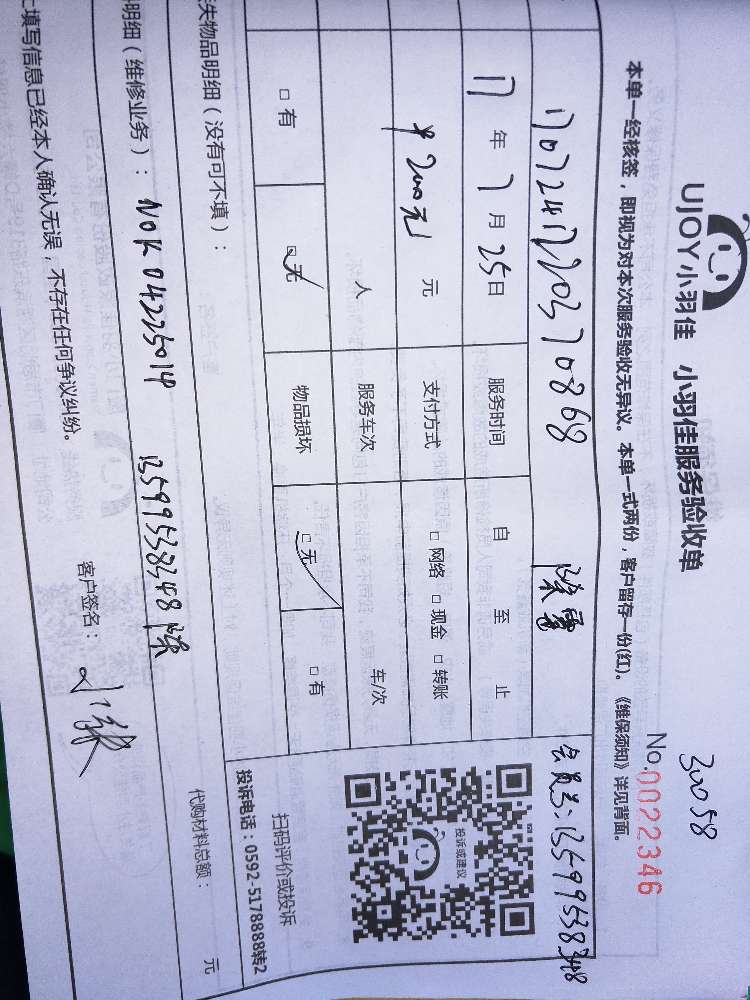 30058
UJOY小羽佳 小羽佳服务验收单
No.0022346
本单一经核签，即视为对本次服务验收无异议。本单一式两份，客户留存一份(红)。《维保须知》详见背面。
会员卡：13599538348
17年7月25日 服务时间 自 至 止
¥200元 元 支付方式 □网络 □现金 □转账
人 服务车次 车/次
□有 □无 物品损坏 □无 □有
投诉或建议
扫码评价或投诉
投诉电话：0592-5178888转2
失物品明细（没有可不填）：
代购材料总额： 元
明细（维修业务）： NOK04225014 13599538348 陈
填写信息已经本人确认无误，不存在任何争议纠纷。
客户签名：